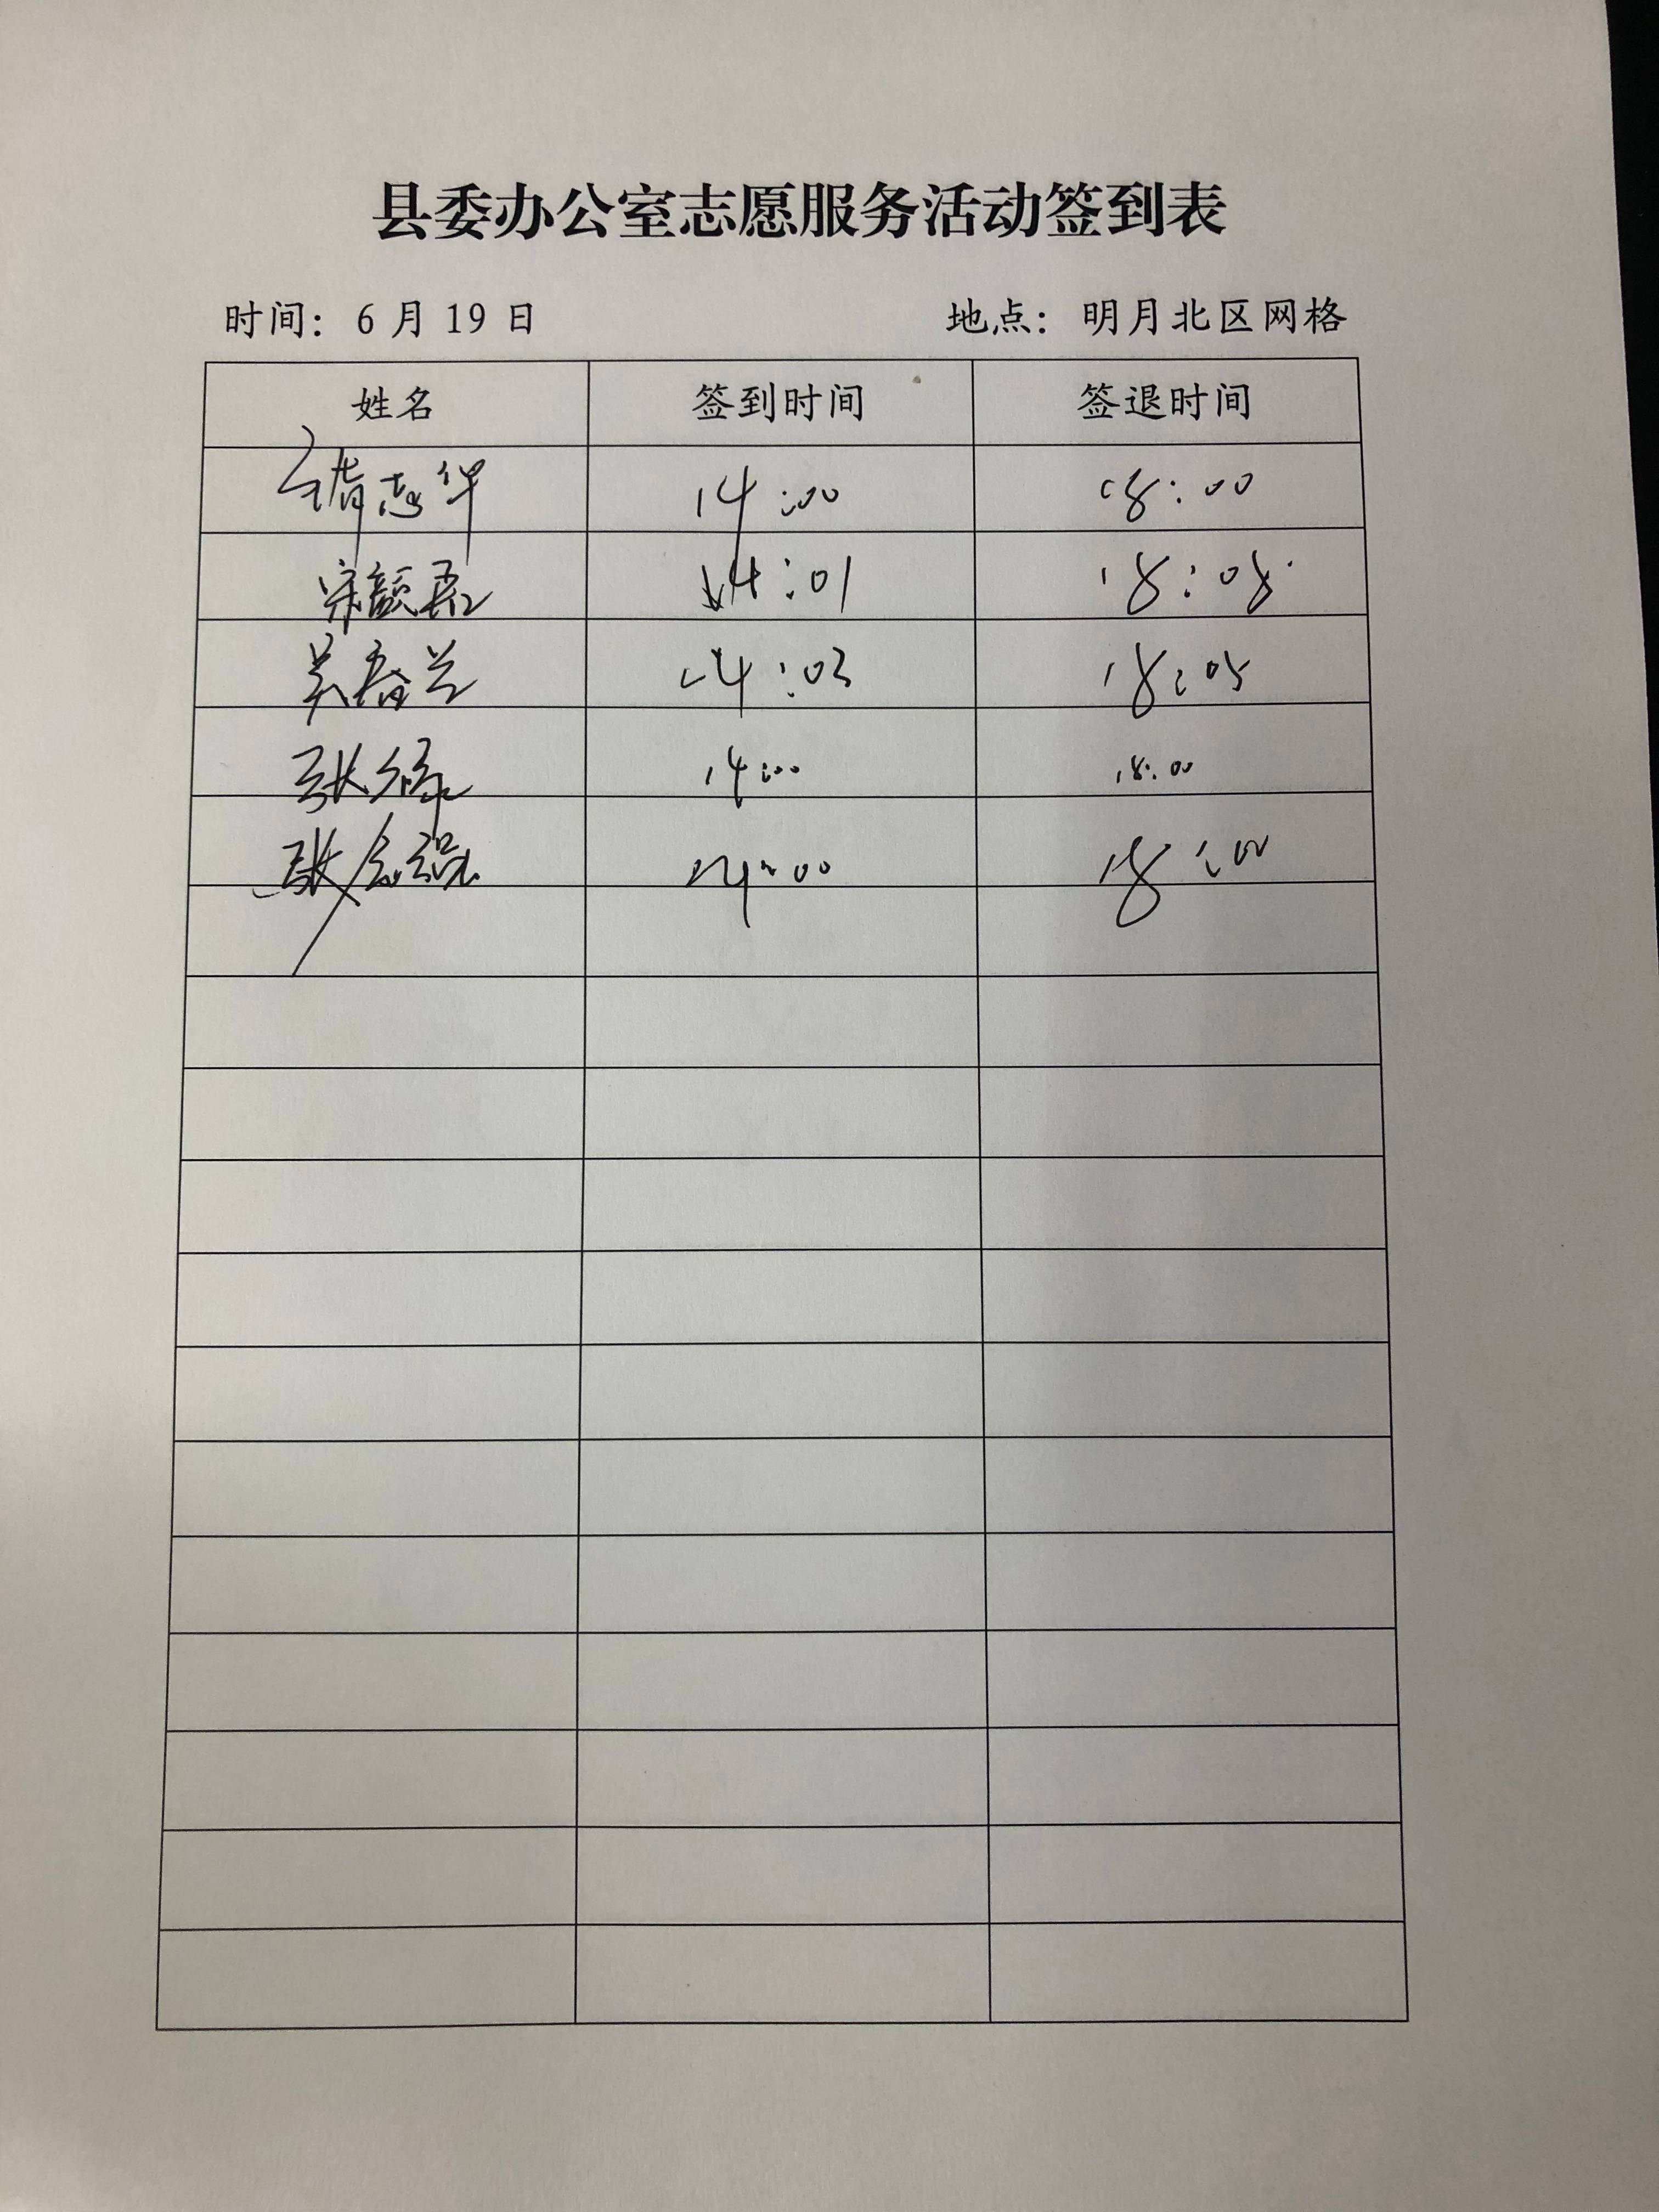 县委办公室志愿服务活动签到表
时间：6月19日 地点：明月北区网格
姓名 签到时间 签退时间
志华 14:00 18:00
宋颜 14:01 18:08
吴春兰 14:03 18:05
张 14:00 18:00
张 14:00 18:00